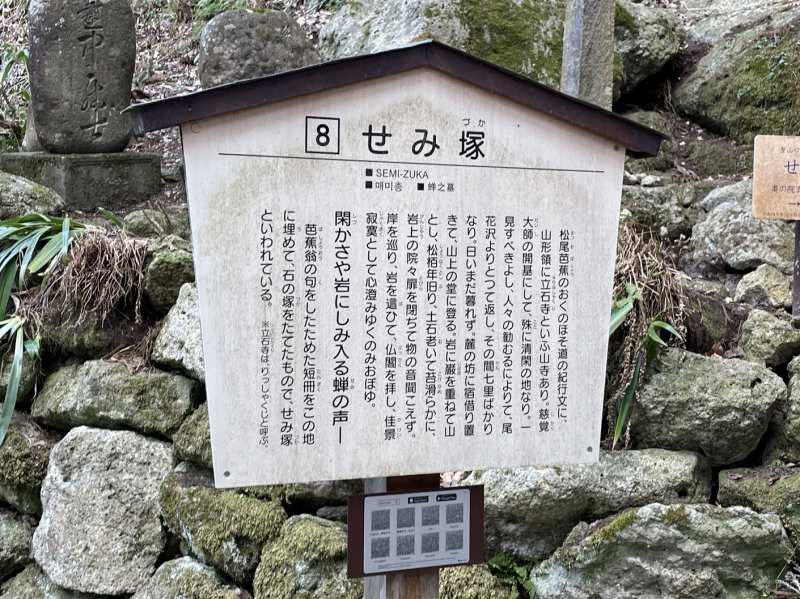 8 せみ塚
づか
■ SEMI-ZUKA
■ 매미총 ■ 蝉之墓
松尾芭蕉のおくのほそ道の紀行文に、
山形領に立石寺といふ山寺あり。慈覚
大師の開基にして、殊に清閑の地なり。一
見すべきよし、人々の勧むるによりて、尾
花沢よりとつて返し、その間七里ばかり
なり。日いまだ暮れず。麓の坊に宿借り置
きて、山上の堂に登る。岩に巖を重ねて山
とし、松栢年旧り、土石老いて苔滑らかに、
岩上の院々扉を閉ぢて物の音聞こえず。
岸を巡り、岩を這ひて、仏閣を拝し、佳景
寂寞として心澄みゆくのみおぼゆ。
閑かさや岩にしみ入る蝉の声
芭蕉翁の句をしたためた短冊をこの地
に埋めて、石の塚をたてたもので、せみ塚
といわれている。 ※立石寺は、りっしゃくじと呼ぶ。